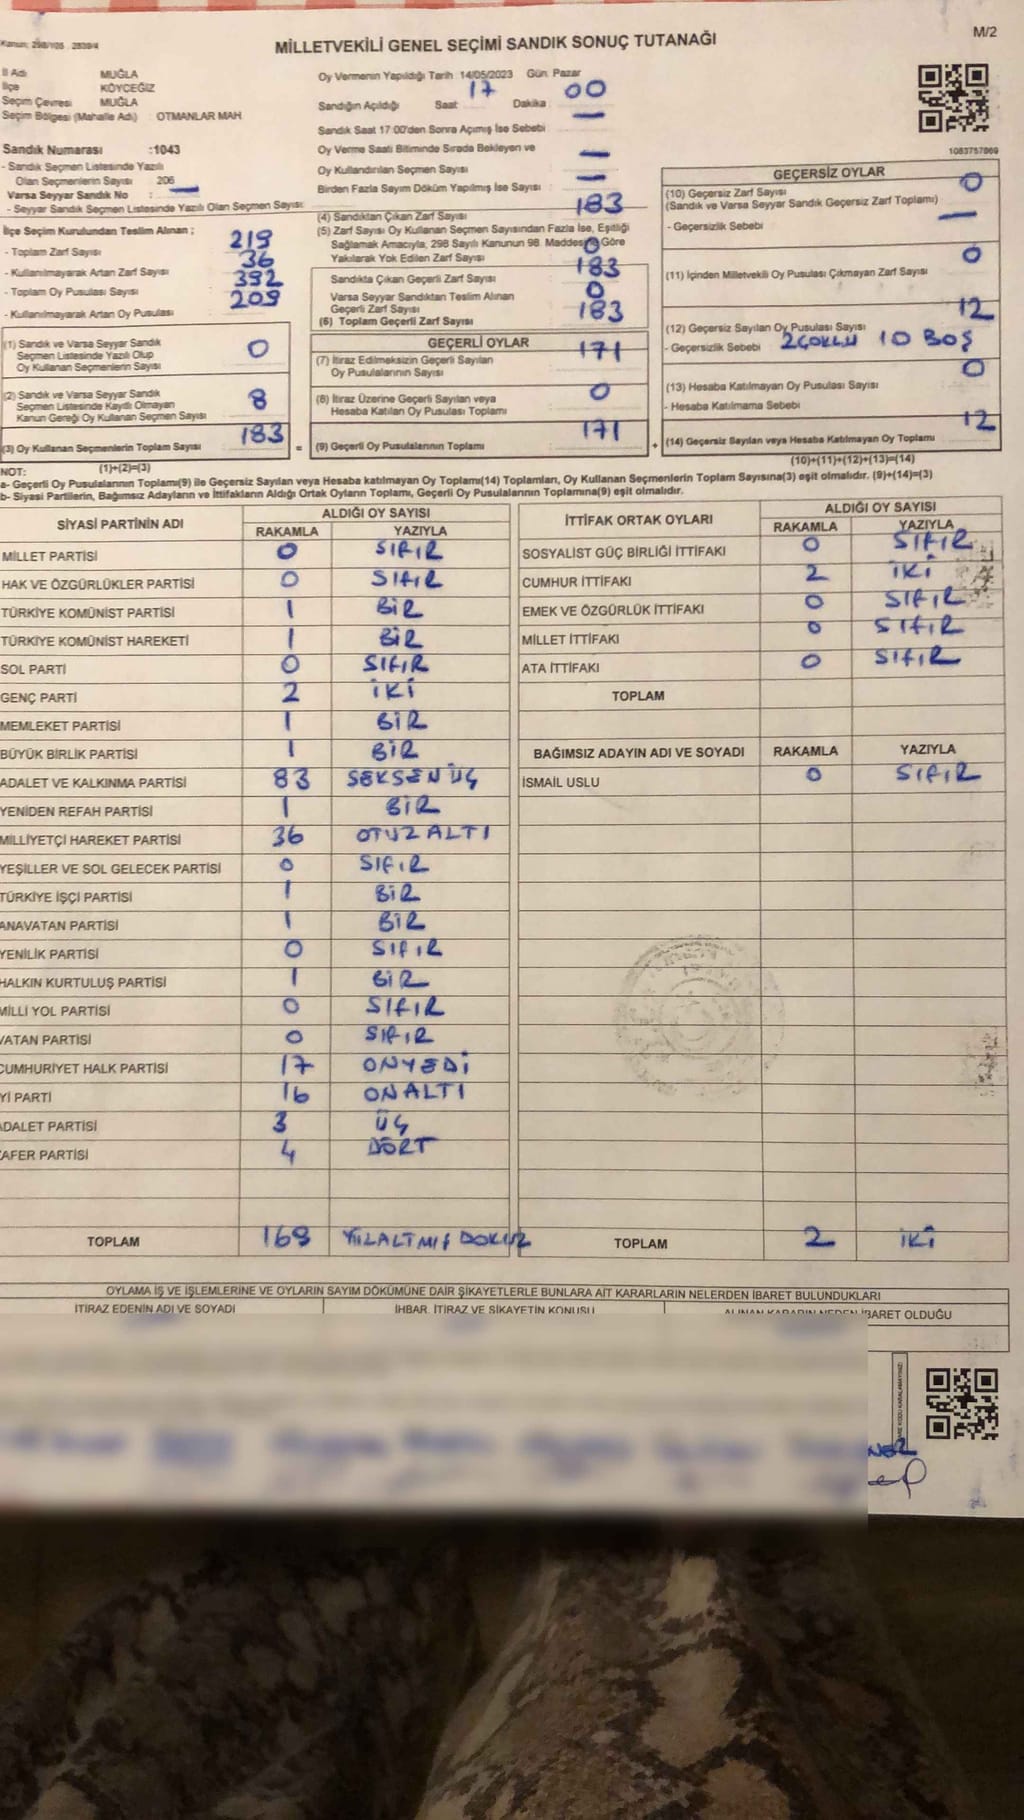 Kanun: 298/105 . 2839/4
MİLLETVEKİLİ GENEL SEÇİMİ SANDIK SONUÇ TUTANAĞI
M/2
İl Adı MUĞLA
İlçe KÖYCEĞİZ
Seçim Çevresi MUĞLA
Seçim Bölgesi (Mahalle Adı) : OTMANLAR MAH
Sandık Numarası :1043
- Sandık Seçmen Listesinde Yazılı
Olan Seçmenlerin Sayısı : 206
Varsa Seyyar Sandık No : —
- Seyyar Sandık Seçmen Listesinde Yazılı Olan Seçmen Sayısı:
İlçe Seçim Kurulundan Teslim Alınan ;
- Toplam Zarf Sayısı 219
- Kullanılmayarak Artan Zarf Sayısı 36
- Toplam Oy Pusulası Sayısı 392
- Kullanılmayarak Artan Oy Pusulası 209
(1) Sandık ve Varsa Seyyar Sandık
Seçmen Listesinde Yazılı Olup
Oy Kullanan Seçmenlerin Sayısı
0
(2) Sandık ve Varsa Seyyar Sandık
Seçmen Listesinde Kayıtlı Olmayan
Kanun Gereği Oy Kullanan Seçmen Sayısı
8
(3) Oy Kullanan Seçmenlerin Toplam Sayısı 183
Oy Vermenin Yapıldığı Tarih :14/05/2023 Gün: Pazar
Sandığın Açıldığı Saat 17 Dakika 00
Sandık Saat 17:00'den Sonra Açımış İse Sebebi —
Oy Verme Saati Bitiminde Sırada Bekleyen ve
Oy Kullandırılan Seçmen Sayısı : —
Birden Fazla Sayım Döküm Yapılmış İse Sayısı : —
(4) Sandıktan Çıkan Zarf Sayısı : 183
(5) Zarf Sayısı Oy Kullanan Seçmen Sayısından Fazla İse, Eşitliği
Sağlamak Amacıyla, 298 Sayılı Kanunun 98. Maddesine Göre
Yakılarak Yok Edilen Zarf Sayısı : 0
Sandıkta Çıkan Geçerli Zarf Sayısı : 183
Varsa Seyyar Sandıktan Teslim Alınan
Geçerli Zarf Sayısı : 0
(6) Toplam Geçerli Zarf Sayısı 183
GEÇERLİ OYLAR
(7) İtiraz Edilmeksizin Geçerli Sayılan
Oy Pusulalarının Sayısı
171
(8) İtiraz Üzerine Geçerli Sayılan veya
Hesaba Katılan Oy Pusulası Toplamı
0
= (9) Geçerli Oy Pusulalarının Toplamı 171 +
1083757869
GEÇERSİZ OYLAR
(10) Geçersiz Zarf Sayısı 0
(Sandık ve Varsa Seyyar Sandık Geçersiz Zarf Toplamı)
- Geçersizlik Sebebi —
(11) İçinden Milletvekili Oy Pusulası Çıkmayan Zarf Sayısı 0
(12) Geçersiz Sayılan Oy Pusulası Sayısı 12
- Geçersizlik Sebebi 2 ÇOKLU 10 BOŞ
(13) Hesaba Katılmayan Oy Pusulası Sayısı 0
- Hesaba Katılmama Sebebi
(14) Geçersiz Sayılan veya Hesaba Katılmayan Oy Toplamı 12
NOT: (1)+(2)=(3)
(10)+(11)+(12)+(13)=(14)
a- Geçerli Oy Pusulalarının Toplamı(9) ile Geçersiz Sayılan veya Hesaba katılmayan Oy Toplamı(14) Toplamları, Oy Kullanan Seçmenlerin Toplam Sayısına(3) eşit olmalıdır. (9)+(14)=(3)
b- Siyasi Partilerin, Bağımsız Adayların ve İttifakların Aldığı Ortak Oyların Toplamı, Geçerli Oy Pusulalarının Toplamına(9) eşit olmalıdır.
SİYASİ PARTİNİN ADI ALDIĞI OY SAYISI
RAKAMLA YAZIYLA
MİLLET PARTİSİ 0 SIFIR
HAK VE ÖZGÜRLÜKLER PARTİSİ 0 SIFIR
TÜRKİYE KOMÜNİST PARTİSİ 1 BİR
TÜRKİYE KOMÜNİST HAREKETİ 1 BİR
SOL PARTİ 0 SIFIR
GENÇ PARTİ 2 İKİ
MEMLEKET PARTİSİ 1 BİR
BÜYÜK BİRLİK PARTİSİ 1 BİR
ADALET VE KALKINMA PARTİSİ 83 SEKSEN ÜÇ
YENİDEN REFAH PARTİSİ 1 BİR
MİLLİYETÇİ HAREKET PARTİSİ 36 OTUZ ALTI
YEŞİLLER VE SOL GELECEK PARTİSİ 0 SIFIR
TÜRKİYE İŞÇİ PARTİSİ 1 BİR
ANAVATAN PARTİSİ 1 BİR
YENİLİK PARTİSİ 0 SIFIR
HALKIN KURTULUŞ PARTİSİ 1 BİR
MİLLİ YOL PARTİSİ 0 SIFIR
VATAN PARTİSİ 0 SIFIR
CUMHURİYET HALK PARTİSİ 17 ONYEDİ
Yİ PARTİ 16 ONALTI
ADALET PARTİSİ 3 ÜÇ
ZAFER PARTİSİ 4 DÖRT
TOPLAM 169 YÜZALTMIŞ DOKUZ
İTTİFAK ORTAK OYLARI ALDIĞI OY SAYISI
RAKAMLA YAZIYLA
SOSYALİST GÜÇ BİRLİĞİ İTTİFAKI 0 SIFIR
CUMHUR İTTİFAKI 2 İKİ
EMEK VE ÖZGÜRLÜK İTTİFAKI 0 SIFIR
MİLLET İTTİFAKI 0 SIFIR
ATA İTTİFAKI 0 SIFIR
TOPLAM
BAĞIMSIZ ADAYIN ADI VE SOYADI RAKAMLA YAZIYLA
İSMAİL USLU 0 SIFIR
TOPLAM 2 İKİ
OYLAMA İŞ VE İŞLEMLERİNE VE OYLARIN SAYIM DÖKÜMÜNE DAİR ŞİKAYETLERLE BUNLARA AİT KARARLARIN NELERDEN İBARET BULUNDUKLARI
İTİRAZ EDENİN ADI VE SOYADI İHBAR, İTİRAZ VE ŞİKAYETİN KONUSU ALINAN KARARIN NEDEN İBARET OLDUĞU